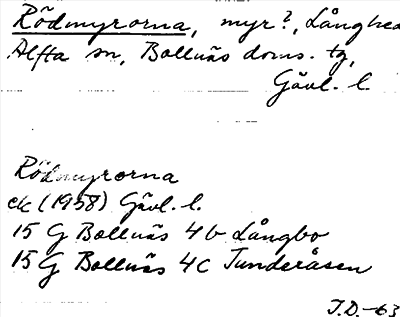 Rödmyrorna, myr?, Långhed
Alfta sn, Bollnäs doms. tg,
Gävl. l.
Rödmyrorna
ek (1958) Gävl. l.
15 G Bollnäs 4b Långbo
15 G Bollnäs 4c Tunderåsen
J.D. -63